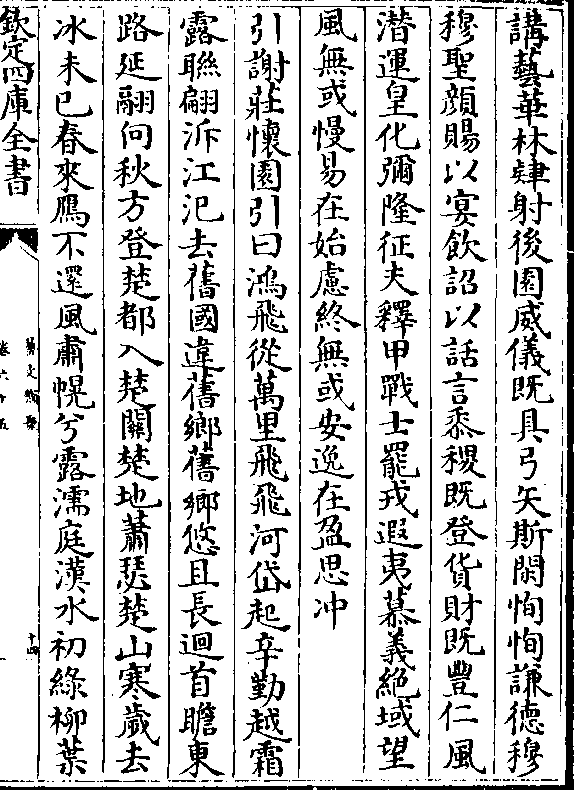 講藝華林肄射後園威儀既具弓矢斯閑恂恂謙德穆
穆聖顔賜以宴飲詔以話言黍稷既登貨財既豐仁風
潛運皇化彌隆征夫釋甲戰士罷戎遐夷慕義絶域望
風無或慢易在始慮終無或安逸在盈思冲
引謝莊懷園引曰鴻飛從萬里飛飛河岱起辛勤越霜
露聯翩泝江汜去舊國違舊鄉舊鄉悠且長迴首瞻東
路延翮向秋方登楚都入楚關楚地蕭瑟楚山寒歲去
冰未已春來鴈不還風肅幌兮露濡庭漢水初綠柳葉
欽定四庫全書
藝文類聚
卷六十五
十四